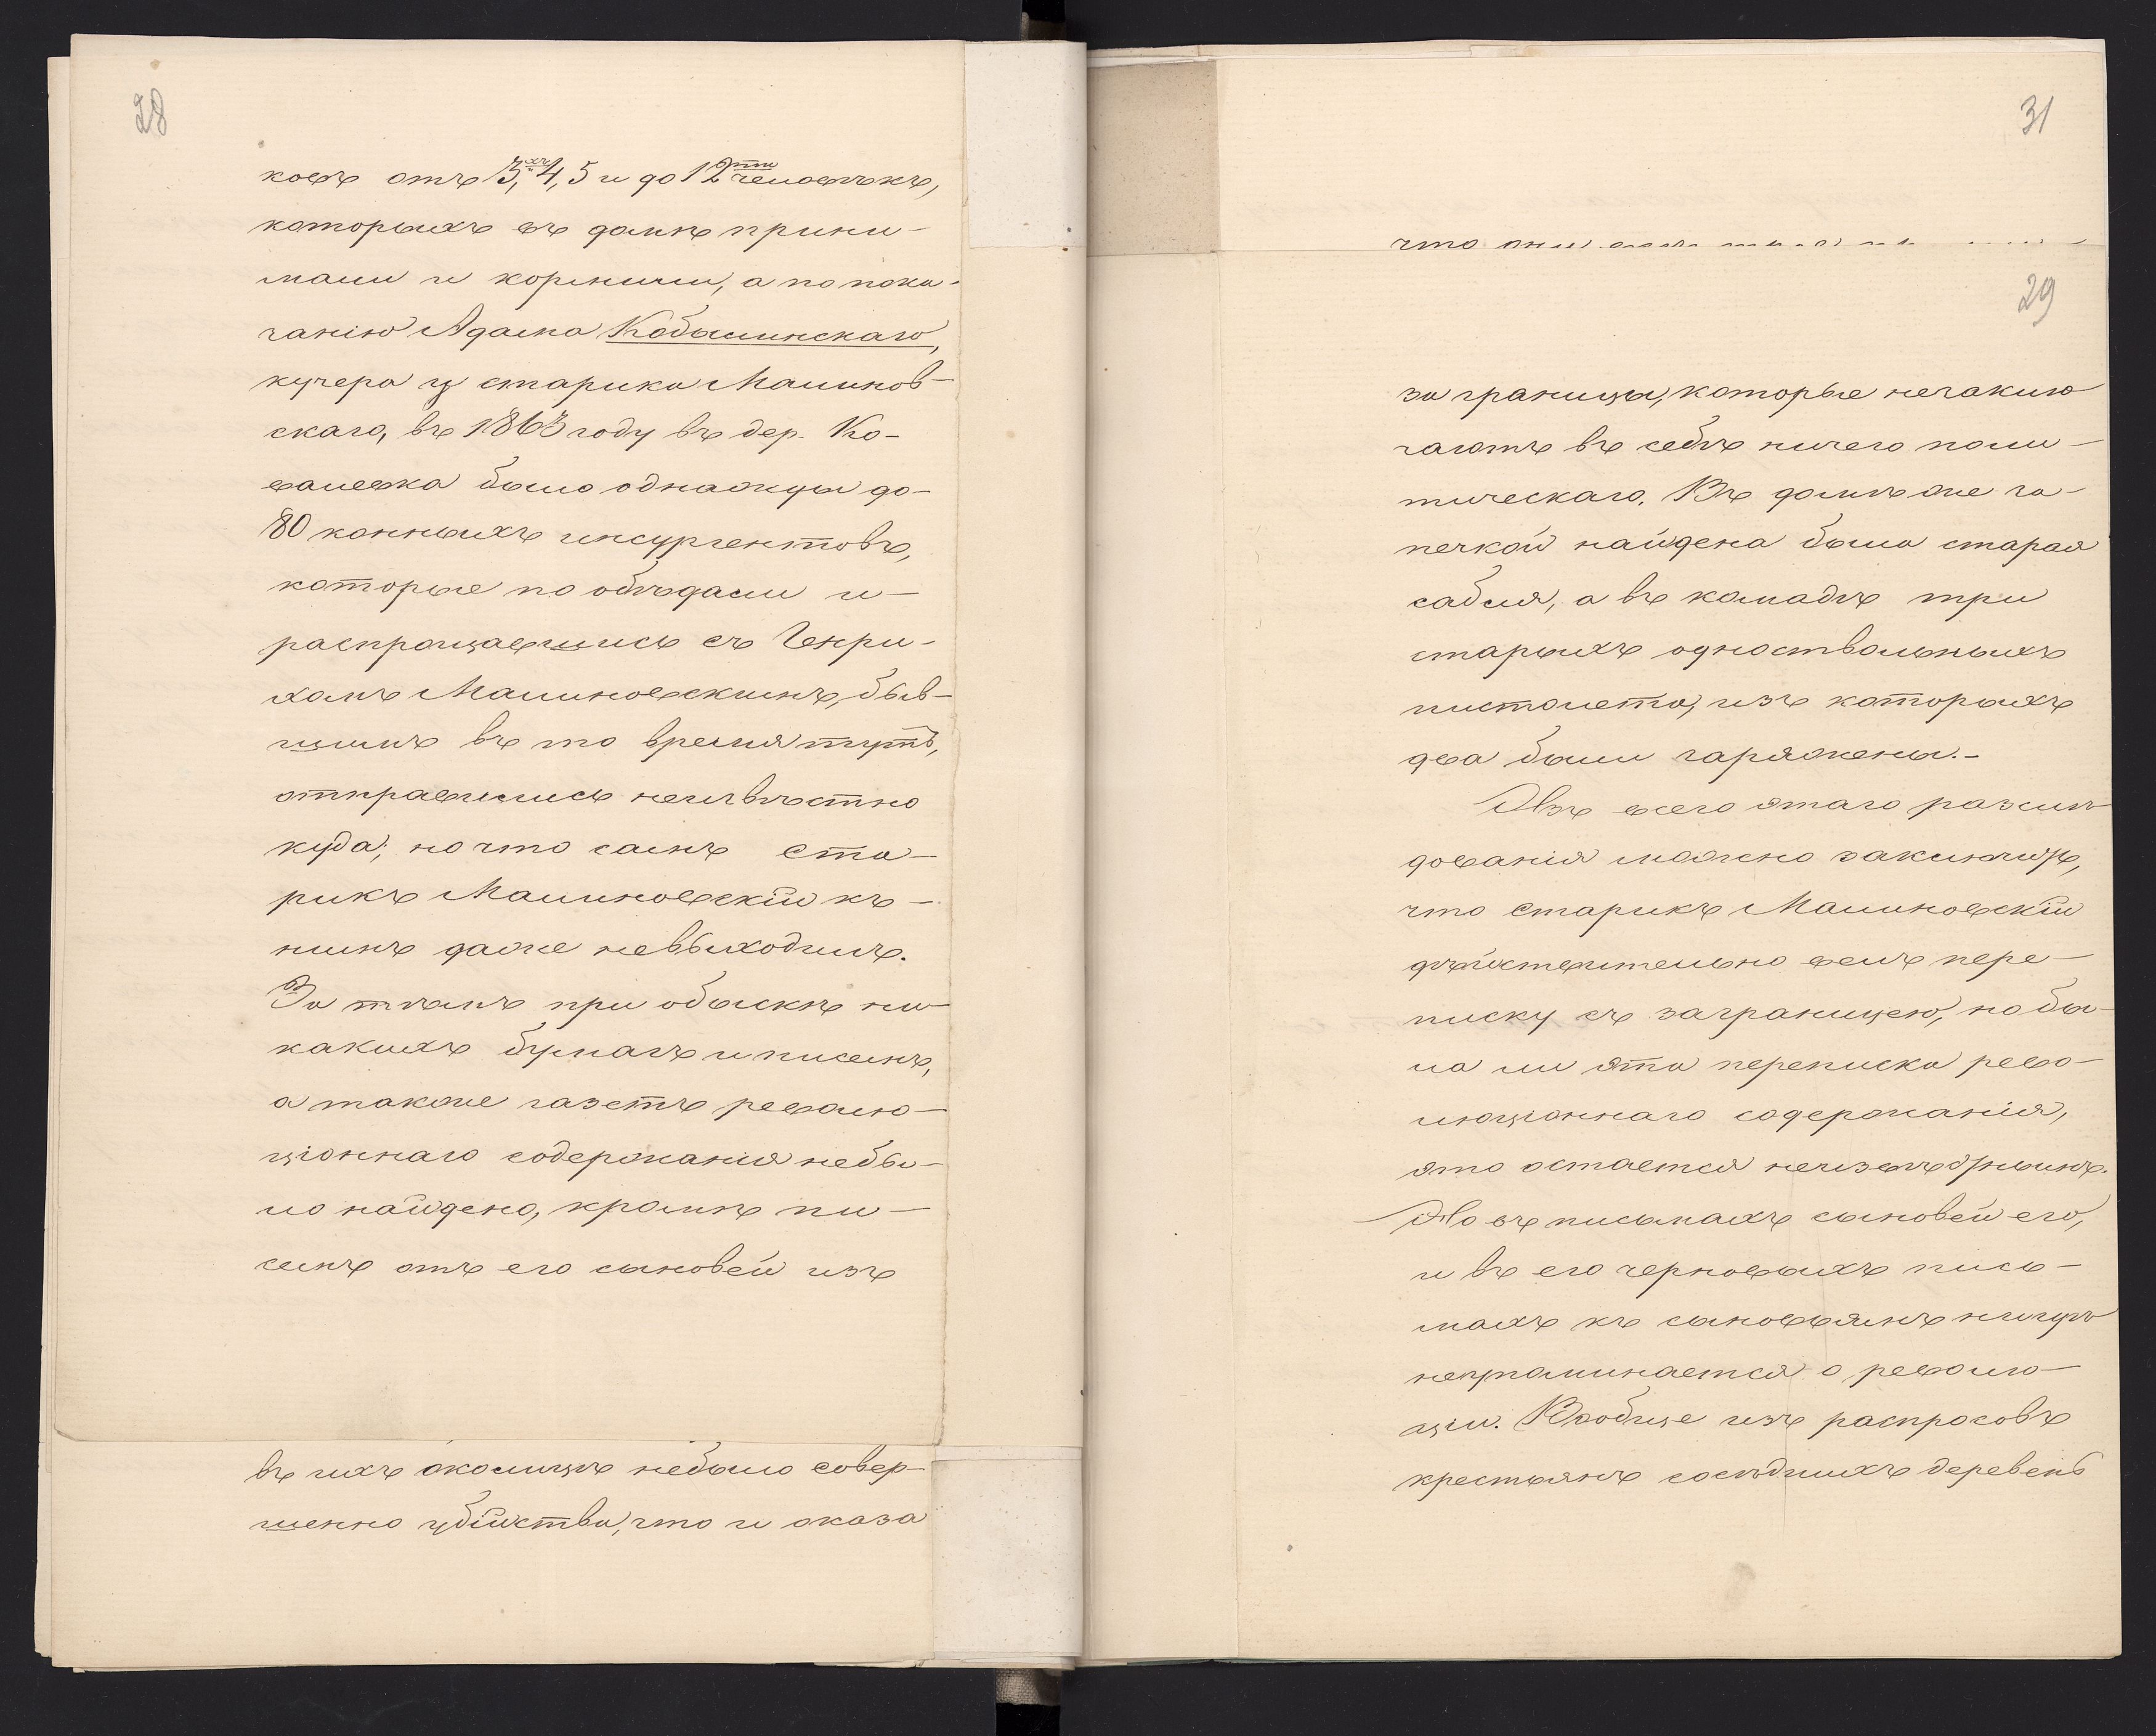 28
ковъ отъ 3,хъ 4, 5 и до 12ти человѣкъ,
которыхъ въ домѣ прини-
мали и кормили, а по пока-
занію Адама Кобылинскаго,
кучера у старика Малинов-
скаго, въ 1863 году въ дер. Ко-
валевка было однажды до-
80 конныхъ инсургентовъ,
которые пообѣдали и-
распрощавшись съ Генри-
хомъ Малиновскимъ, быв-
шимъ въ то время тутъ,
отправились неизвѣстно
куда; но что самъ ста-
рикъ Малиновскій къ-
нимъ даже невыходилъ.
За тѣмъ при обыскѣ ни-
какихъ бумагъ и писемъ,
а также газетъ револю-
ціоннаго содержанія небы-
ло найдено, кромѣ пи-
семъ отъ его сыновей изъ
въ ихъ околицѣ небыло совер-
шенно убійства, что и оказа
31
что они
29
за границы, которые незаклю
чаютъ въ себѣ ничего поли-
тическаго. Въ домѣ же за-
печкой найдена была старая
сабля, а въ комодѣ три
старыхъ одноствольныхъ
пистолета, изъ которыхъ
два были заряжены.-
Изъ всего этаго разслѣ
дованія можно заключить,
что старикъ Малиновскій
дѣйствительно велъ пере-
писку съ заграницею, но бы-
ла ли эта переписка рево-
люціоннаго содержанія,
это остается неизвѣстнымъ.
Но въ письмахъ сыновей его,
и въ его черновыхъ пись-
махъ къ сыновьямъ нигдѣ
неупоминается о револю-
ціи. Вообще изъ распросовъ
крестьянъ сосѣднихъ деревень